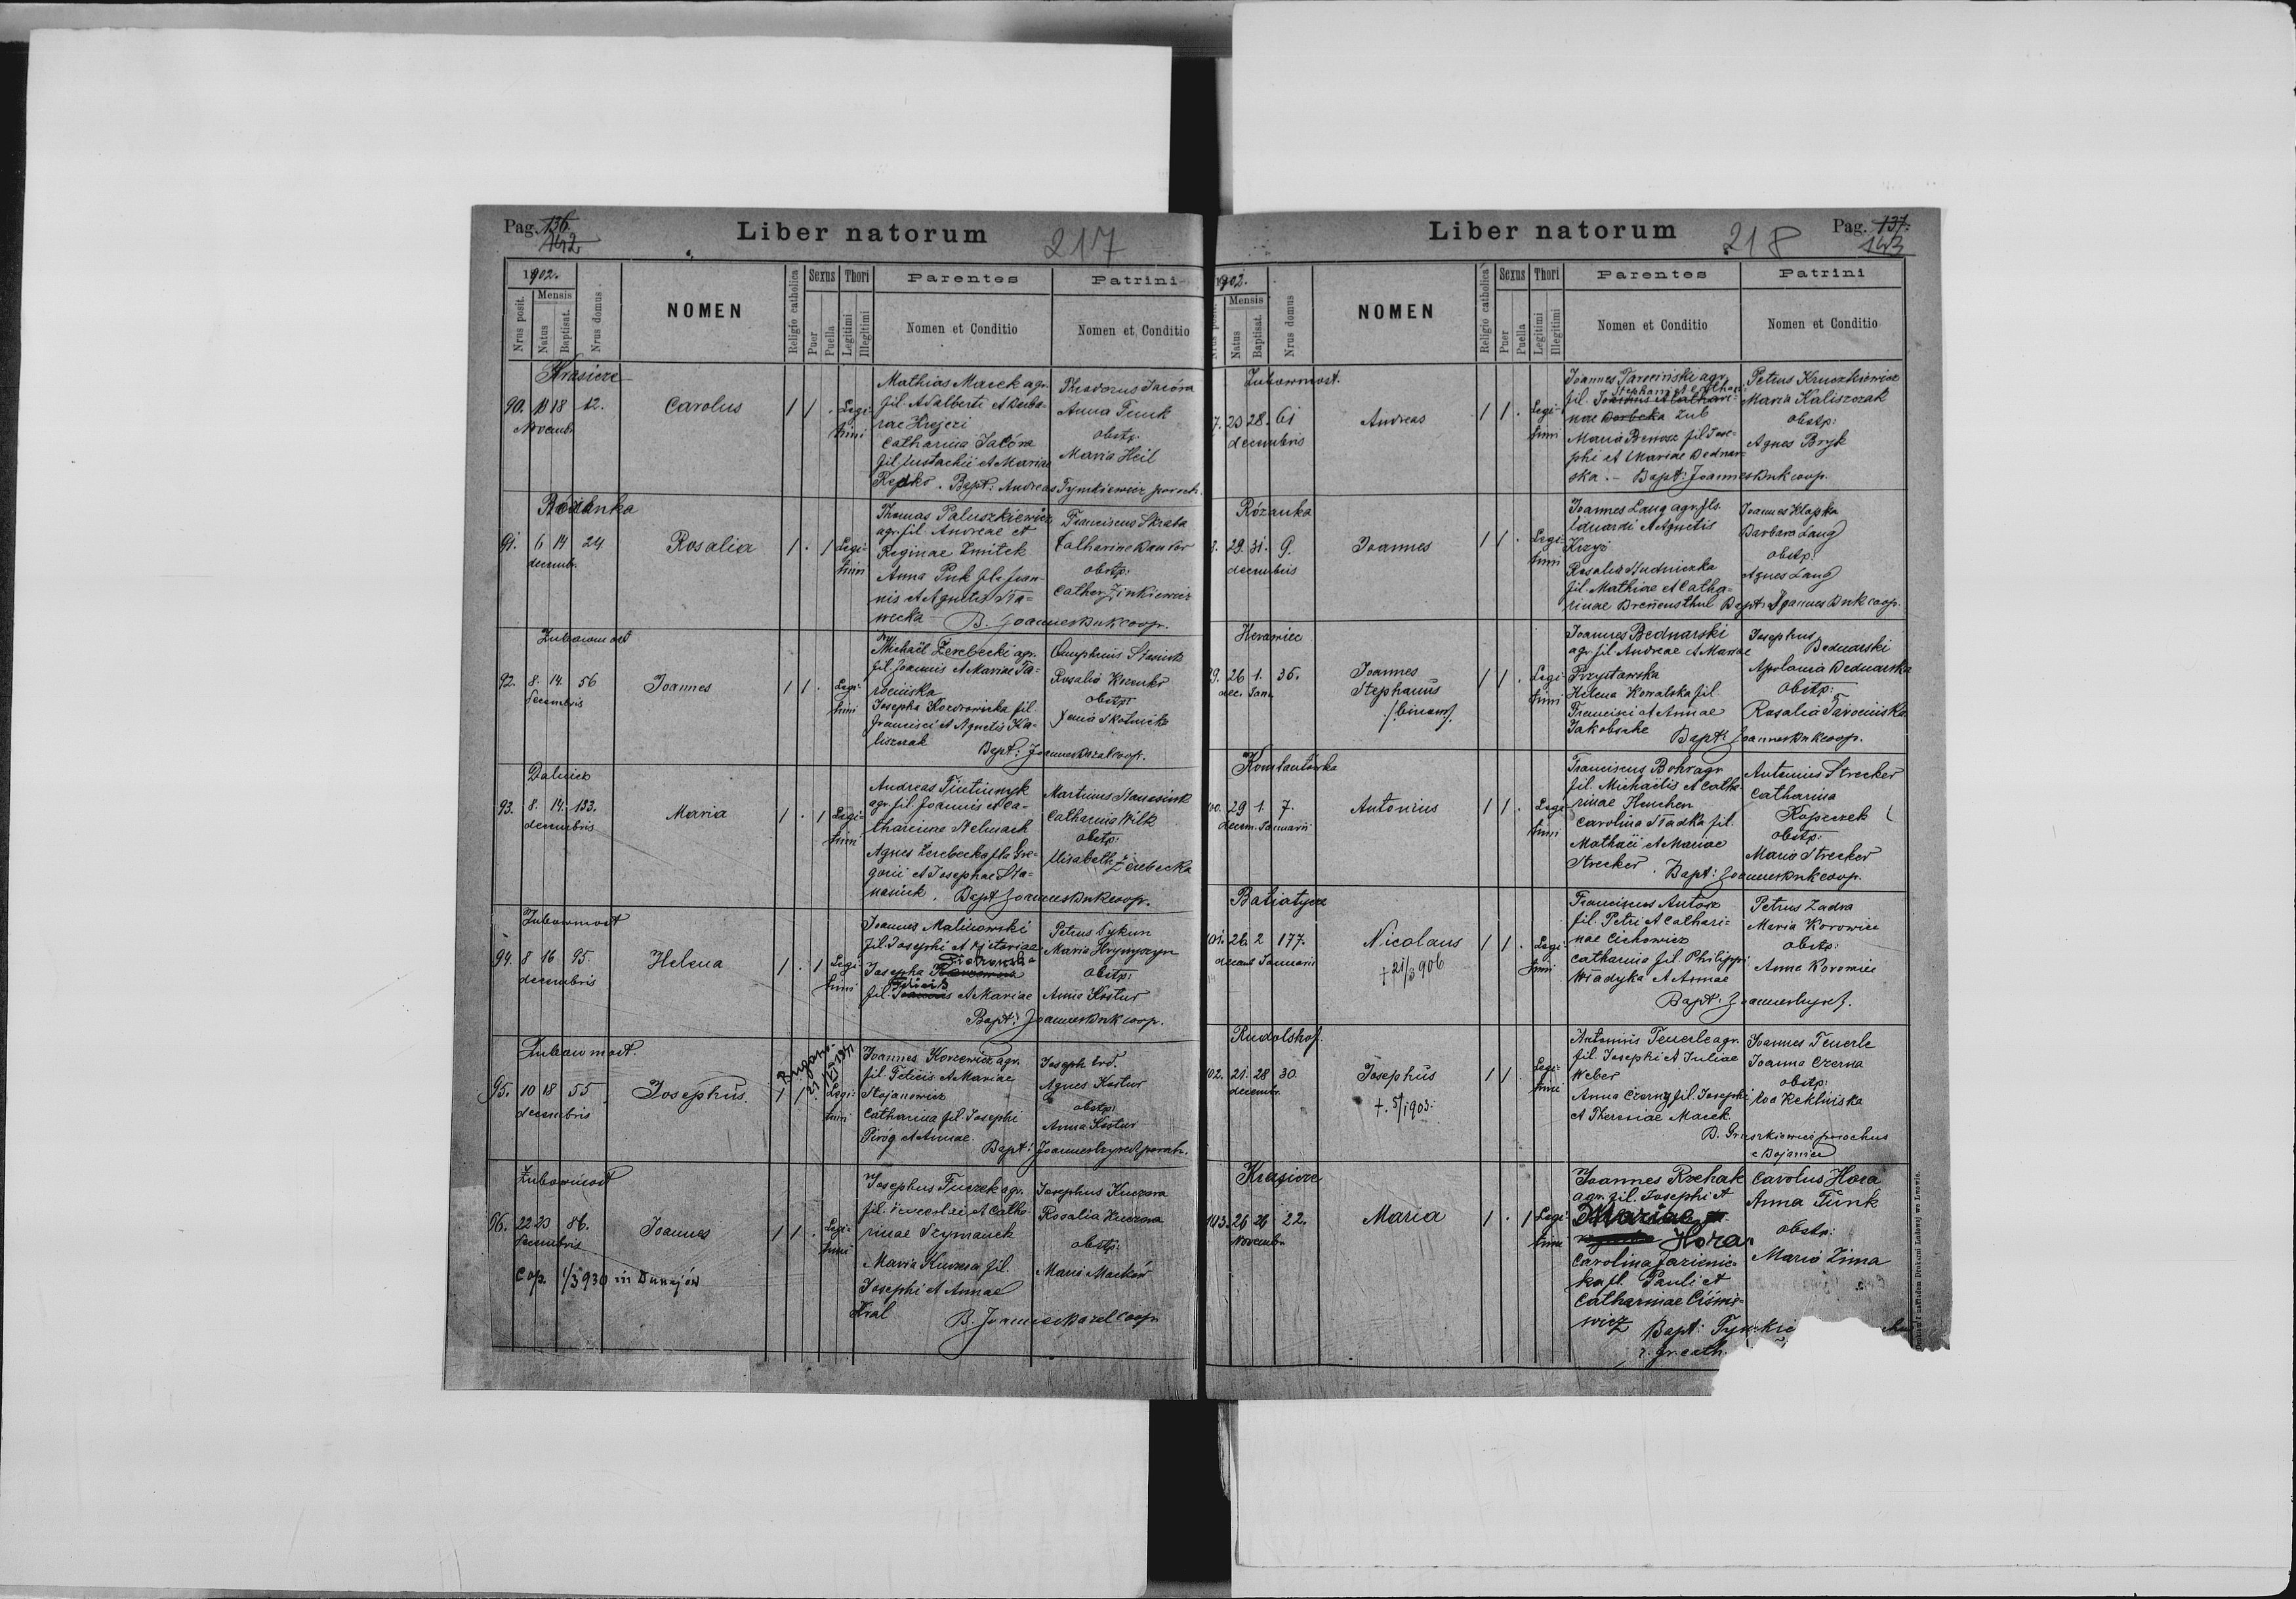 Pag. 136.
142
Liber natorum
217
1902.
Nrus posit.
Mensis
Natus
Baptisat.
Nrus domus
NOMEN
Religio catholica
Sexus
Puer
Puella
Thori
Legitimi
Illegitimi
Parentes
Nomen et Conditio
Patrini
Nomen et Conditio
Krasicze
90. 18 12.
Novembr.
Carolus
1 1 . Legi-
timi
Mathias Macek agr.
fil. Adalberti et Barba-
rae Krejczi
Catharina Jacóra
fil. Eustachii et Mariae
Redko. Bapt: Andreas Tymkiewicz paroch.
Theodorus Jacóra
Anna Funk
obstp:
Maria Heil
Różanka
91. 6 14 24
decembr.
Rosalia
1 . 1 Legi-
timi
Thomas Paluszkiewicz
agr. fil. Andreae et
Reginae Zmitek
Anna Puk fil. Joan-
nis et Agnetis
B. Joannes Buk coop.
Franciscus Skraba
Catharina
obstp:
Cather. Zinkiewicz
Żubowmost
92. 8. 14. 56
decembris
Joannes
1 1 . Legi-
timi
Michaël Zerebecki agr.
fil. Joannis et Mariae Ta-
rocińska
Josepha fil.
Francisci et Agnetis Ka-
liszczak
Bapt: Joannes coop.
Onuphrius Stasiuk
Rosalia
obstp:
Dalnicz
93. 8. 14. 133.
decembris
Maria
1 . 1 Legi-
timi
Andreas
agr. fil. Joannis et Ca-
tharinae
Agnes Zerebecka fila Gre-
gorii et Josephae Sta-
nasiuk. Bapt Joannes Buk coop.
Martinus Stanasiuk
Catharina Wilk
obstp:
Elisabeth Zerebecka
Żubowmost
94. 8 16 95.
decembris
Helena
1 . 1 Legi-
timi
Joannes Malinowski
fil. Josephi et Victoriae
Piotrowska
Josepha
fil. Felicis et Mariae
Bapt: Joannes Buk coop.
Petrus Sykun
Maria
obstp:
Anna Kostur
Żubowmost.
95. 10 18 55
decembris
Josephus.
1 1 . Legi-
timi
Joannes Korzewicz agr.
fil. Felicis et Mariae
Stojanowicz
Catharina fil. Josephi
Piróg et Annae.
Bapt: Joannes paroch.
Joseph
Agnes Kostur
obstp:
Anna Kostur
Żubowmost
96. 22 23 86.
decembris
Joannes
Cop. 1/5 930 in Dunajów
1 1 . Legi-
timi
Josephus Turek agr.
fil. Venceslai et Catha-
rinae Szymanek
Maria Kucera fil.
Josephi et Annae
Kral
B. Joannes Mazel coop
Josephus Kucera
Rosalia Kucera
obstp:
Maria Macków
Liber natorum
218
Pag. 137.
143
1902.
Nrus posit.
Mensis
Natus
Baptisat.
Nrus domus
NOMEN
Religio catholica
Sexus
Puer
Puella
Thori
Legitimi
Illegitimi
Parentes
Nomen et Conditio
Patrini
Nomen et Conditio
Żubowmost.
7. 23 28. 61
decembris
Andreas
1 1 . Legi-
timi
Joannes Tarociński agr.
Stephani et Cathari-
fil.
nae Zub
Maria fil. Jose-
phi et Mariae Bednar-
ska. - Bapt: Joannes Buk coop.
Petrus Kruczkiewicz
Maria Kaliszczak
obstp:
Agnes Bryk
Różanka
8. 29. 31. 9.
decembris
Joannes
1 1 . Legi-
timi
Joannes Lang agr. fls.
Eduardi et Agnetis
Krzyż
Rosalia Hudniczka
fil. Mathiae et Catha-
rinae Bapt: Joannes Buk coop.
Joannes Klapka
Barbara Lang
obstp:
Agnes Lang
Kerawiec
99. 26 1. 36.
dec. Jan.
Joannes
Stephanus
/binom/.
1 1 . Legi-
timi
Joannes Bednarski
agr. fil. Andreae et Mariae
Przystawska
Helena Kowalska fil.
Francisci et Annae
Jakobsche Bapt: Joannes Buk coop.
Josephus
Bednarski
Apolonia Bednarska
obstp:
Rosalia Tarocińska
Konstantówka
100. 29 1. 7.
decem. Januarii
Antonius
1 1 . Legi-
timi
Franciscus Bohr agr.
fil. Michaelis et Catha-
rinae Henchen
Carolina fil.
Mathaei et Mariae
Strecker. Bapt: Joannes Buk coop.
Antonius Strecker
Catharina
Kopeczek
obstp:
Maria Strecker
Batiatycze
101. 26 2 177.
decemb Januarii
Nicolaus
+ 21/3 906
1 1 . Legi-
timi
Franciscus Antosz
fil. Petri et Cathari-
nae Cichowicz
Catharina fil. Philippi
Władyka et Annae
Bapt: Joannes
Petrus Zadra
Maria Korowiec
obstp:
Anna Korowiec
Rudolshof.
102. 21. 28 30
decembr.
Josephus
+. 5/1 903.
1 1 Legi-
timi
Antonius Feuerle agr.
fil. Josephi et Juliae
Weber
Anna Czerny fil. Josephi
et Theresiae Macek
B. Gruszkiewicz parochus
e Bojaniec
Joannes Feuerle
Joanna Czerna
obstp:
Eva Reklińska
Krasicze
103. 26 26 22.
Novembr.
Maria
1 . 1 Legi-
timi
Joannes Rzehak
agr. fil. Josephi et
Mariae
Hora.
Carolina
fl. Pauli et
Catharinae
wicz Bapt:
r. gr. cath.
Carolus Hora
Anna Funk
obstp:
Maria Zima
nakładem Drukarni Ludowej we Lwowie.